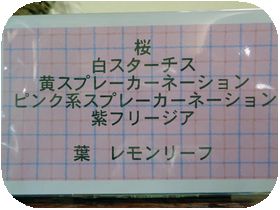 桜
白スターチス
黄スプレーカーネーション
ピンク系スプレーカーネーション
紫フリージア
葉　レモンリーフ